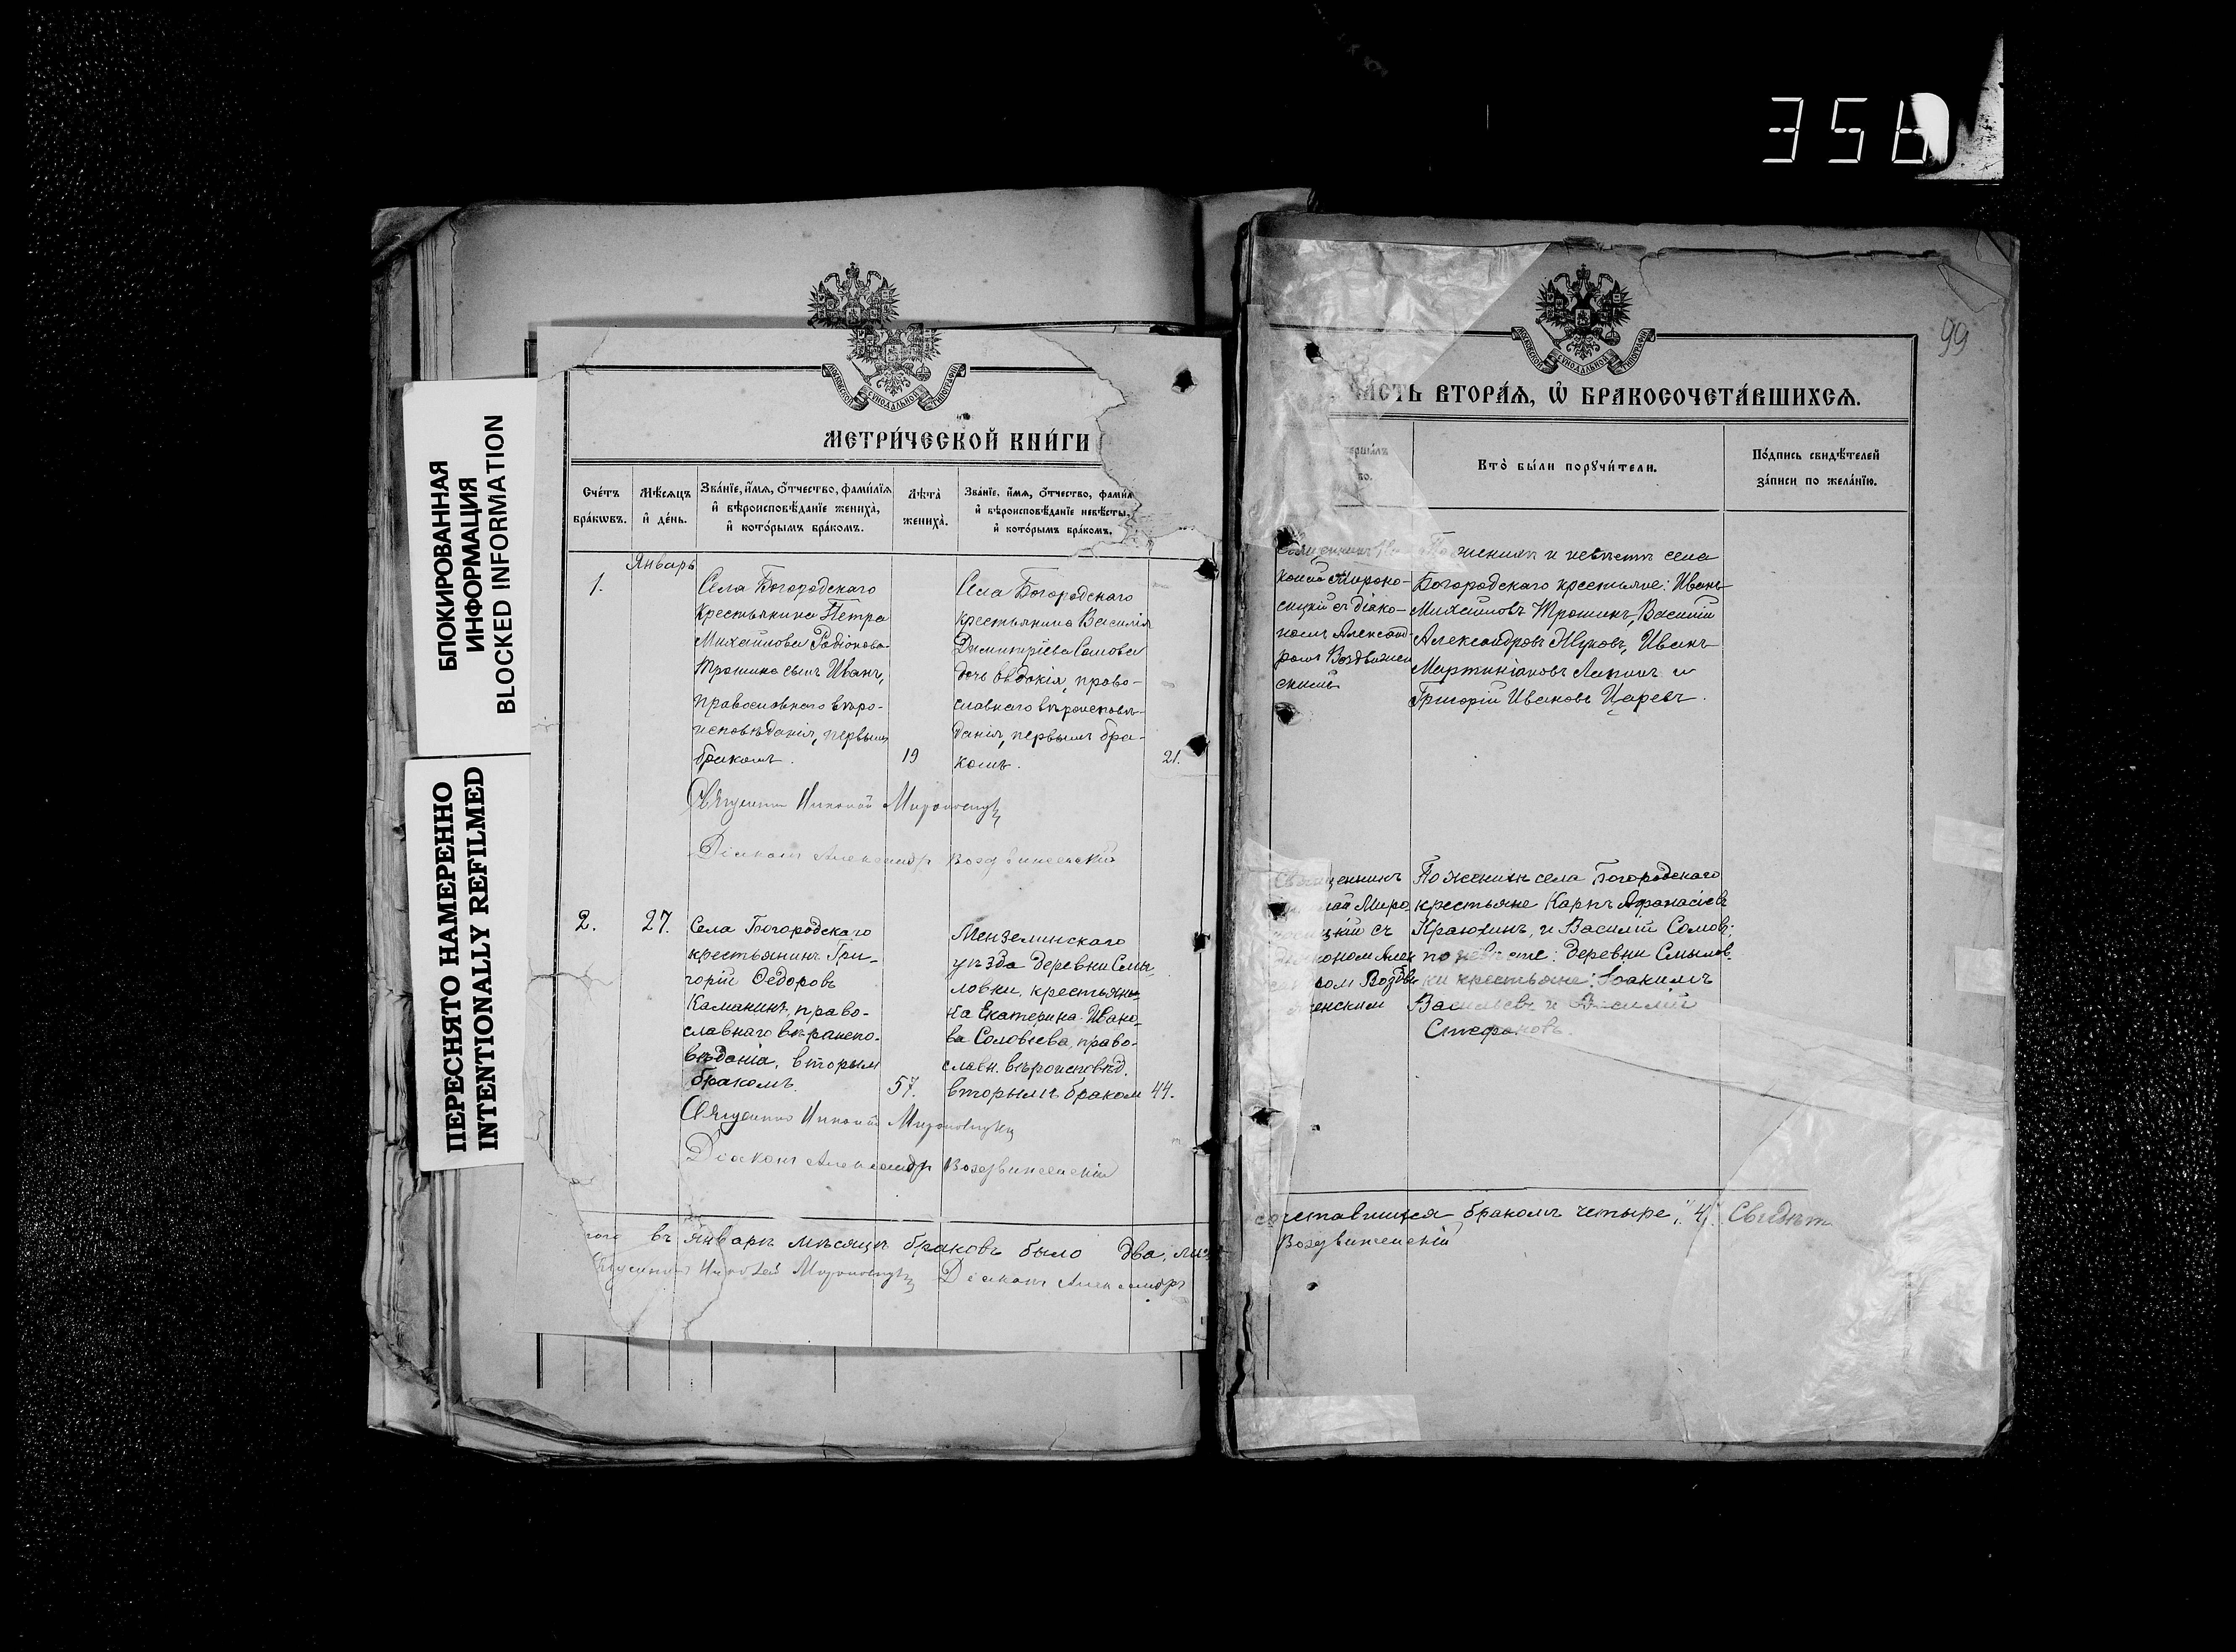 358
99
БЛОКИРОВАННАЯ
ИНФОРМАЦИЯ
BLOCKED INFORMATION
ПЕРЕСНЯТО НАМЕРЕННО
INTENTIONALLY REFILMED
МЕТРИ́ЧЕСКОЙ КНИ́ГИ
Сче́тъ
бра́кѡвъ.
Мѣ́сяцъ
и҆ де́нь.
Зва́нїе, и҆́мя, ѻ҆́тчество, фами́лїя
и҆ вѣроисповѣ́данїе жениха̀,
и҆ кото́рымъ бра́комъ.
Лѣ́та
жениха̀.
Зва́нїе, и҆́мя, ѻ҆́тчество, фами́лїя
и҆ вѣроисповѣ́данїе невѣ́сты,
и҆ кото́рымъ бра́комъ.
Январь
1.
Села Богородскаго
крестьянина Петра
Михайлова Радіонова
Трошина сынъ Иванъ,
православнаго вѣро-
исповѣданія, первымъ
бракомъ.
19
Села Богородскаго
крестьянина Василія
Димитріева Сомова
дочь Евдокія, право-
славнаго вѣроисповѣ-
данія, первымъ бра-
комъ.
21.
Священникъ Николай Мироносицкій
Діаконъ Александръ Воздвиженскій
2.
27.
Села Богородскаго
крестьянинъ Гри-
горій Ѳедоровъ
Каманинъ, право-
славнаго вѣроиспо-
вѣданія, вторым
бракомъ.
57.
Мензелинскаго
уѣзда деревни Смы
ловки, крестьян-
ка Екатерина Ивано-
ва Соловьева, право-
славн. вѣроисповѣд.
вторымъ браком
44.
Священникъ Николай Мироносицкій
Діаконъ Александръ Воздвиженскій
въ Январѣ мѣсяцѣ браковъ было два,
Николай Мироносицкій Діаконъ Александръ
ЧА́СТЬ ВТОРА́Я, Ѡ҆ БРАКОСОЧЕТА́ВШИХСЯ.
Кто̀ бы́ли порꙋчи́тели.
По́дпись свидѣ́телей
за́писи по жела́нїю.
колай Мироно-
сицкій съ діако-
номъ Александ-
ромъ Воздвижен
скимъ
По женихѣ и невѣстѣ села
Богородскаго крестьяне: Иванъ
Михайловъ Трошинъ, Василій
Александровъ Жуковъ, Иванъ
Мартиніановъ Лапинъ и
Григорій Ивановъ Царевъ.
Священникъ
лай Миро
сицкій съ
Діаконом Алек
ром Воздви
женским
По женихѣ села Богородскаго
крестьяне Карпъ Афанасіевъ
Краюхинъ, и Василій Сомовъ;
по невѣстѣ: деревни Смылов
ки крестьяне: Іоакимъ
Васильевъ и Василій
Стефановъ.
сочетавшихся бракомъ четыре, "4".
Воздвиженскій